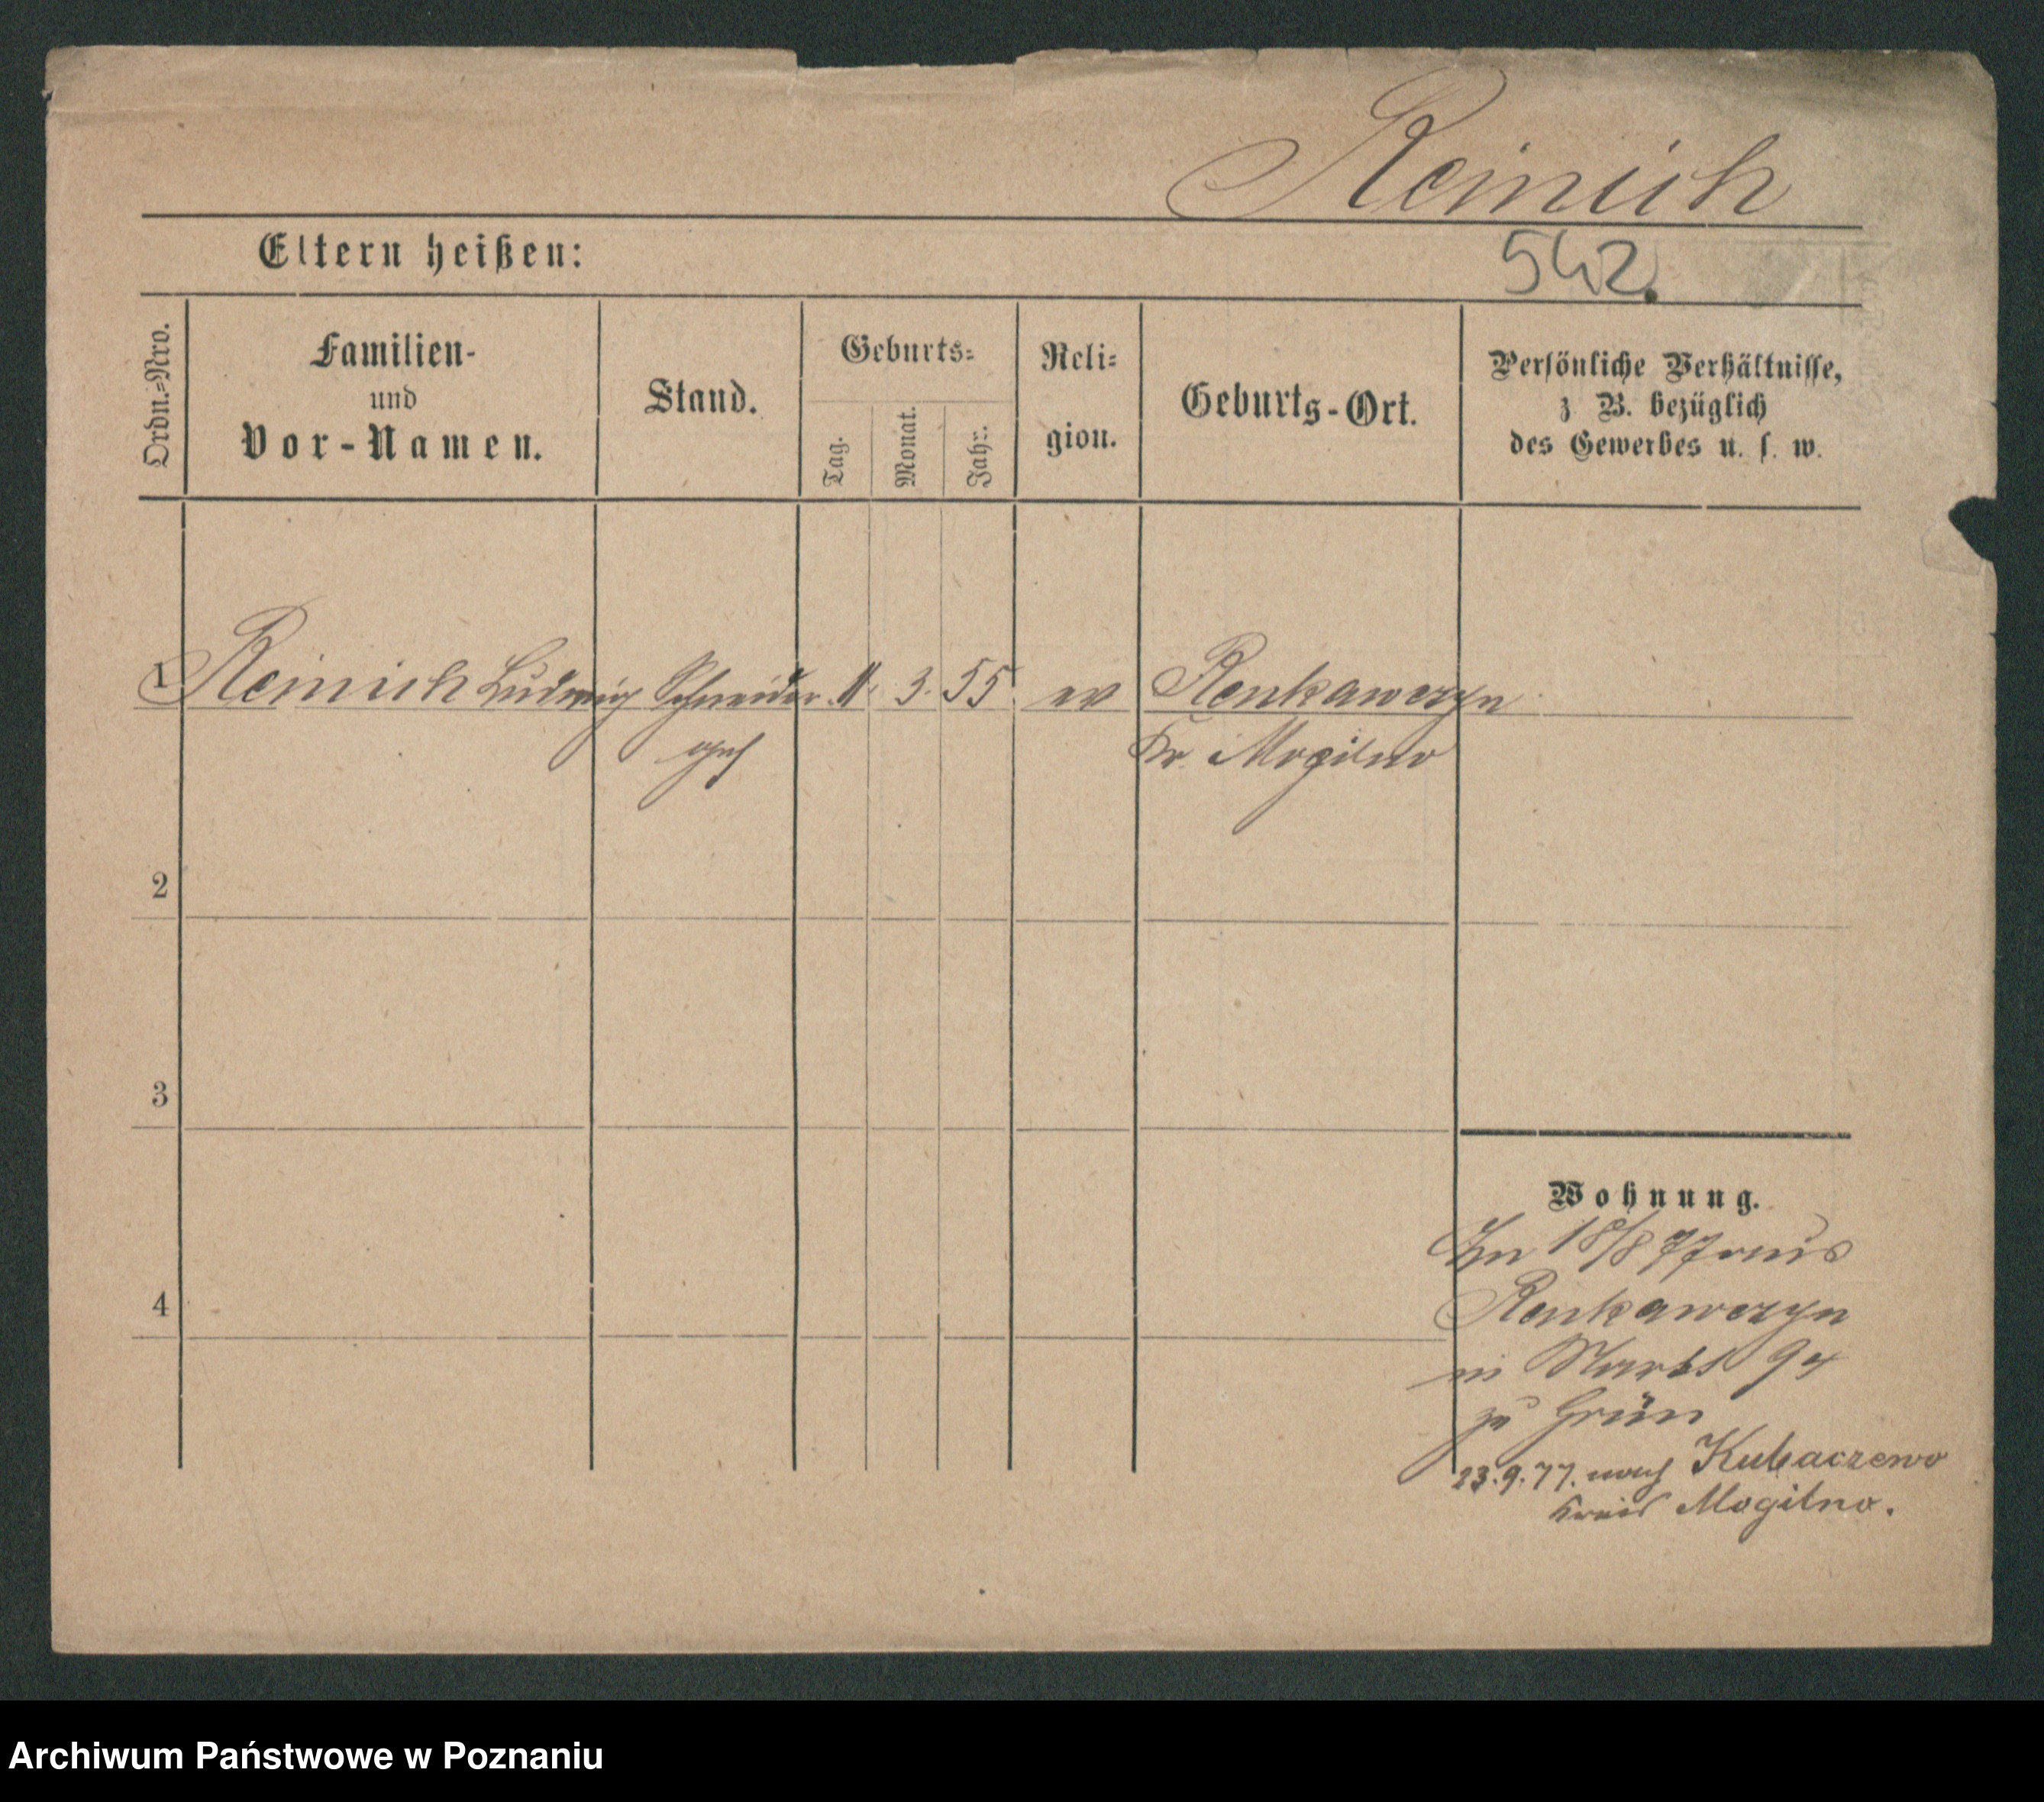 Reinich
Eltern heißen:
542.
Ordn.=Nro.
Familien-
und
Vor-Namen.
Stand.
Geburts=
Tag.
Monat.
Jahr.
Reli=
gion.
Geburts-Ort.
Persönliche Verhältnisse,
z B. bezüglich
des Gewerbes u. s. w.
1 Reinich Ludwig Schneider 3. 55. ev Renkawczyn
Kr. Mogilno
2
3
4
Wohnung.
18/8 77 aus
Renkawczyn
in Markt 94
zu Grün
23.9.77. nach Kubaczewo
Kreis Mogilno.
Archiwum Państwowe w Poznaniu